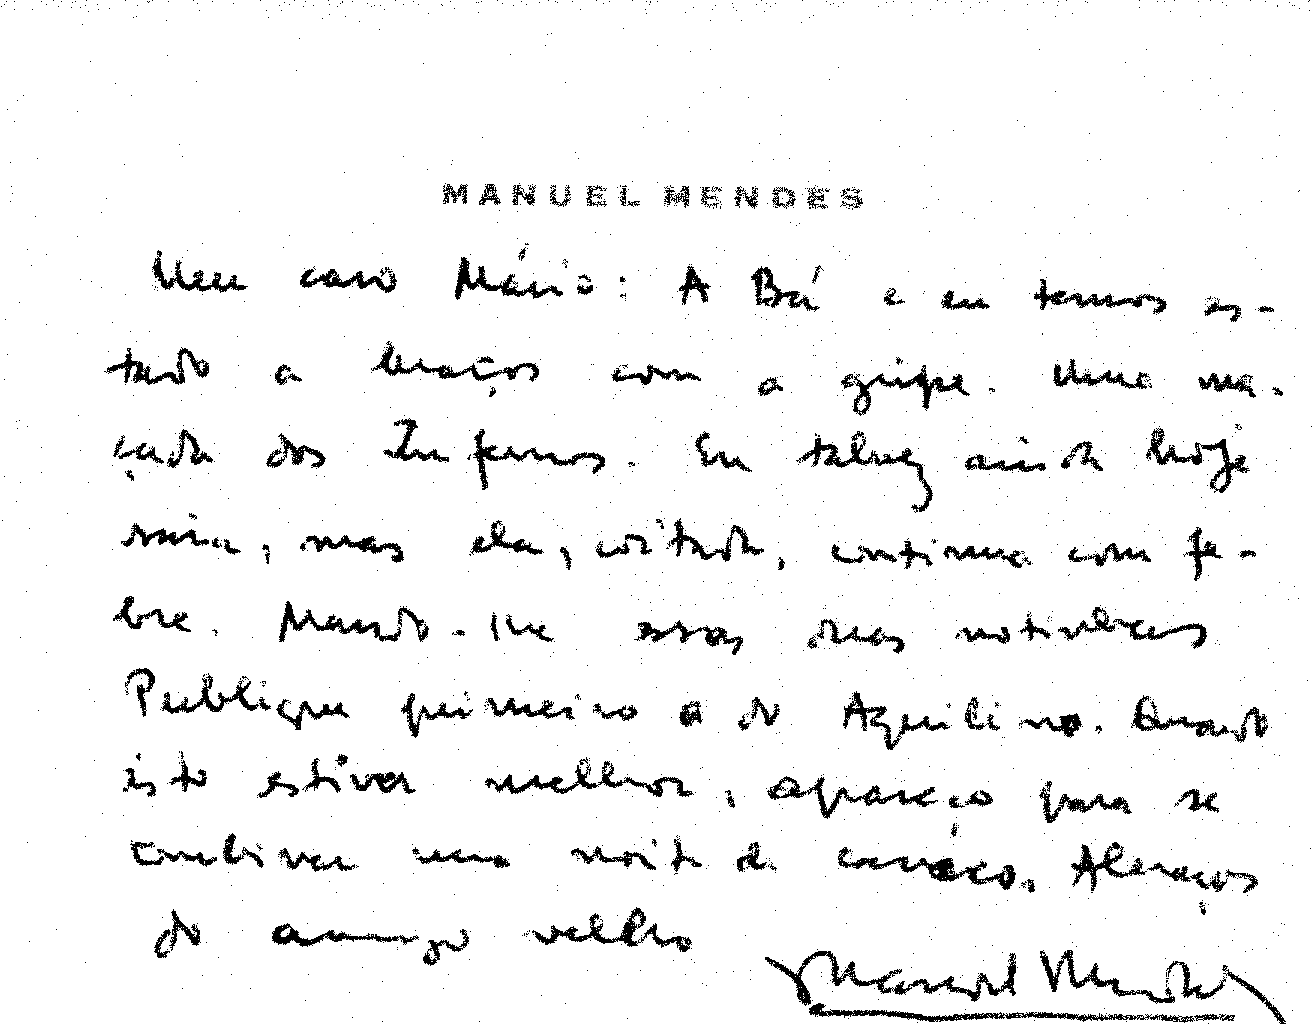 MANUEL MENDES
Meu caro Mário: A Bá e eu temos es-
tado a braços com a gripe. Uma ma-
çada dos Infernos. Eu talvez ainda hoje
saia, mas ela, coitada, continua com fe-
bre. Mando-lhe essas duas
Publique primeiro a do Aquilino. Quando
isto estiver melhor, apareço para se
combinar uma noite de cavaco. Abraços
do amigo velho
Manuel Mendes